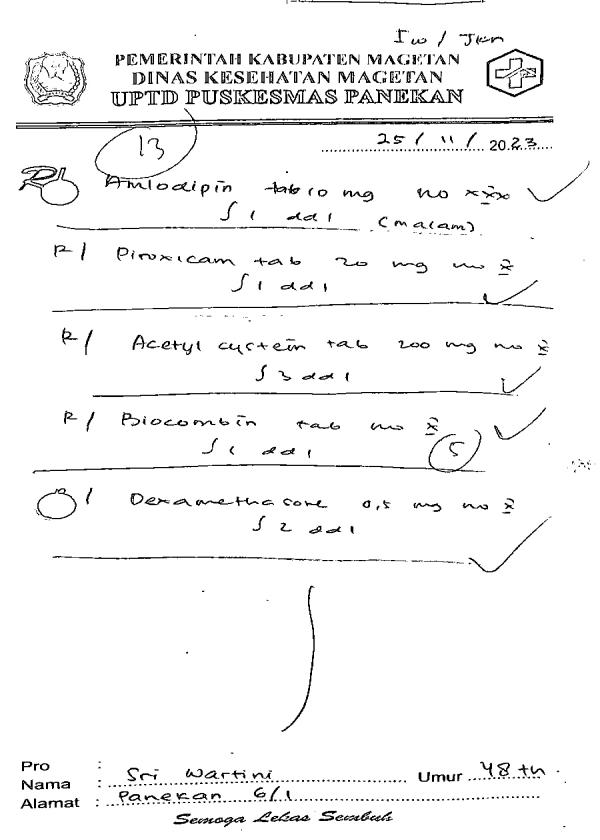 Iw / Jkn
PEMERINTAH KABUPATEN MAGETAN
DINAS KESEHATAN MAGETAN
UPTD PUSKESMAS PANEKAN
13
25 / 11 / 2023
R/ Amlodipin tab 10 mg no xxx
ʃ 1 dd 1 (malam)
R/ Piroxicam tab 20 mg no x
ʃ 1 dd 1
R/ Acetyl cystein tab 200 mg no x
ʃ 3 dd 1
R/ Biocombin tab no x
ʃ 1 dd 1 5
/ Dexamethasone 0,5 mg no x
ʃ 2 dd 1
Pro :
Nama : Sri Wartini Umur 48 th
Alamat : Panekan 6/1
Semoga Lekas Sembuh